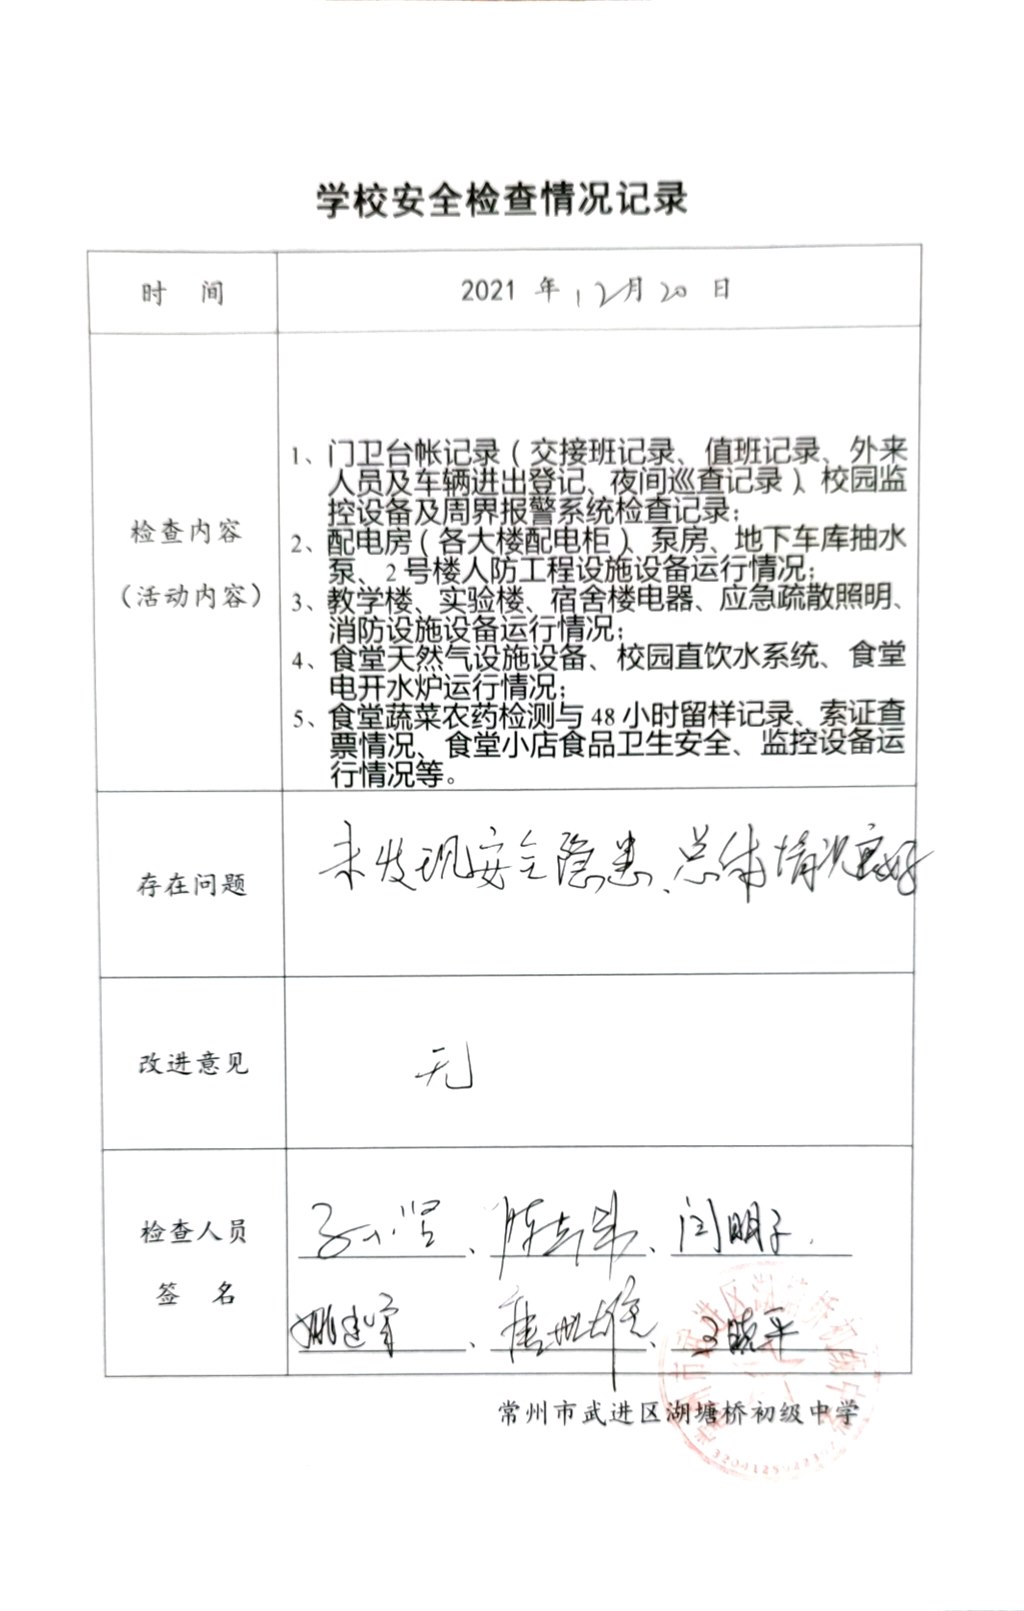 学校安全检查情况记录
时 间
2021 年 12月 20 日
检查内容
（活动内容）
1、门卫台帐记录（交接班记录、值班记录、外来
人员及车辆进出登记、夜间巡查记录）、校园监
控设备及周界报警系统检查记录；
2、配电房（各大楼配电柜）、泵房、地下车库抽水
泵、2 号楼人防工程设施设备运行情况；
3、教学楼、实验楼、宿舍楼电器、应急疏散照明、
消防设施设备运行情况；
4、食堂天然气设施设备、校园直饮水系统、食堂
电开水炉运行情况；
5、食堂蔬菜农药检测与 48 小时留样记录、索证查
票情况、食堂小店食品卫生安全、监控设备运
行情况等。
存在问题
未发现安全隐患、总体情况良好
改进意见
无
检查人员
签 名
闫明子
姚建峰、
王晓平
常州市武进区湖塘桥初级中学